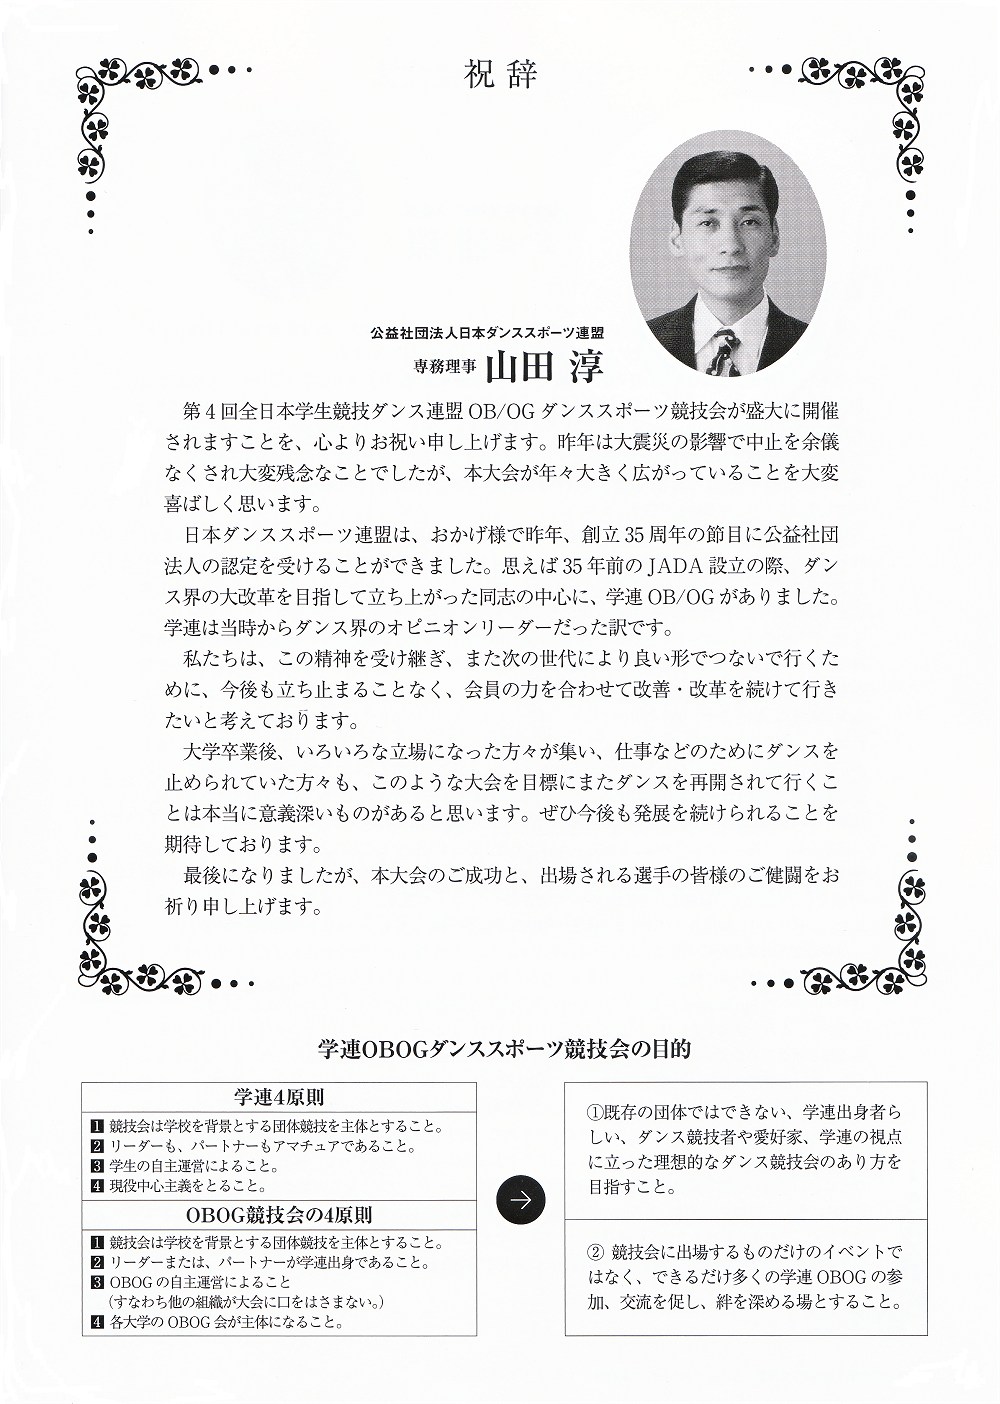 祝辞
公益社団法人日本ダンススポーツ連盟
専務理事 山田 淳
第4回全日本学生競技ダンス連盟OB/OGダンススポーツ競技会が盛大に開催
されますことを、心よりお祝い申し上げます。昨年は大震災の影響で中止を余儀
なくされ大変残念なことでしたが、本大会が年々大きく広がっていることを大変
喜ばしく思います。
日本ダンススポーツ連盟は、おかげ様で昨年、創立35周年の節目に公益社団
法人の認定を受けることができました。思えば35年前のJADA設立の際、ダン
ス界の大改革を目指して立ち上がった同志の中心に、学連OB/OGがありました。
学連は当時からダンス界のオピニオンリーダーだった訳です。
私たちは、この精神を受け継ぎ、また次の世代により良い形でつないで行くた
めに、今後も立ち止まることなく、会員の力を合わせて改善・改革を続けて行き
たいと考えております。
大学卒業後、いろいろな立場になった方々が集い、仕事などのためにダンスを
止められていた方々も、このような大会を目標にまたダンスを再開されて行くこ
とは本当に意義深いものがあると思います。ぜひ今後も発展を続けられることを
期待しております。
最後になりましたが、本大会のご成功と、出場される選手の皆様のご健闘をお
祈り申し上げます。
学連OBOGダンススポーツ競技会の目的
学連4原則
1 競技会は学校を背景とする団体競技を主体とすること。
2 リーダーも、パートナーもアマチュアであること。
3 学生の自主運営によること。
4 現役中心主義をとること。
OBOG競技会の4原則
1 競技会は学校を背景とする団体競技を主体とすること。
2 リーダーまたは、パートナーが学連出身であること。
3 OBOGの自主運営によること
(すなわち他の組織が大会に口をはさまない。)
4 各大学のOBOG会が主体になること。
→
①既存の団体ではできない、学連出身者ら
しい、ダンス競技者や愛好家、学連の視点
に立った理想的なダンス競技会のあり方を
目指すこと。
② 競技会に出場するものだけのイベントで
はなく、できるだけ多くの学連OBOGの参
加、交流を促し、絆を深める場とすること。